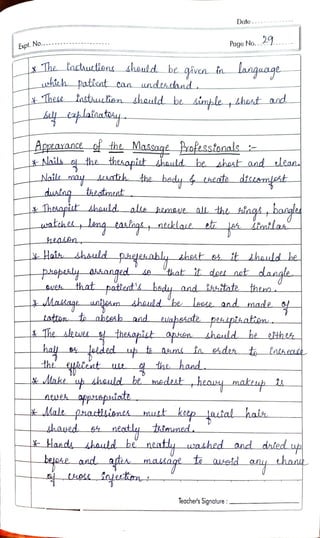 Date
Expt. No.
Page No. 29
* The instructions should be given in language
which patient can understand.
* These instruction should be simple, short and
self explainatory.
Appearance of the Massage Professionals :-
* Nails of the therapist should be short and clean.
Nails may scratch the body & create discomfort
during treatment.
* Therapist should also remove all the rings, bangles
watches, long earings, necklace etc for similar
reason.
* Hair should preferably short or it should be
properly arranged so that it does not dangle
over that patient's body and irritate them.
* Massage uniform should be loose and made of
cotton to absorb and evaporate perspiration.
* The sleeves of therapist apron should be either
half or folded up to arms in order to increase
the efficient use of the hand.
* Make up should be modest, heavy makeup is
never appropriate.
* Male practitioner must keep facial hair
shaved or neatly trimmed.
* Hands should be neatly washed and dried up
before and after massage to avoid any chance
of cross infection.
Teacher's Signature :